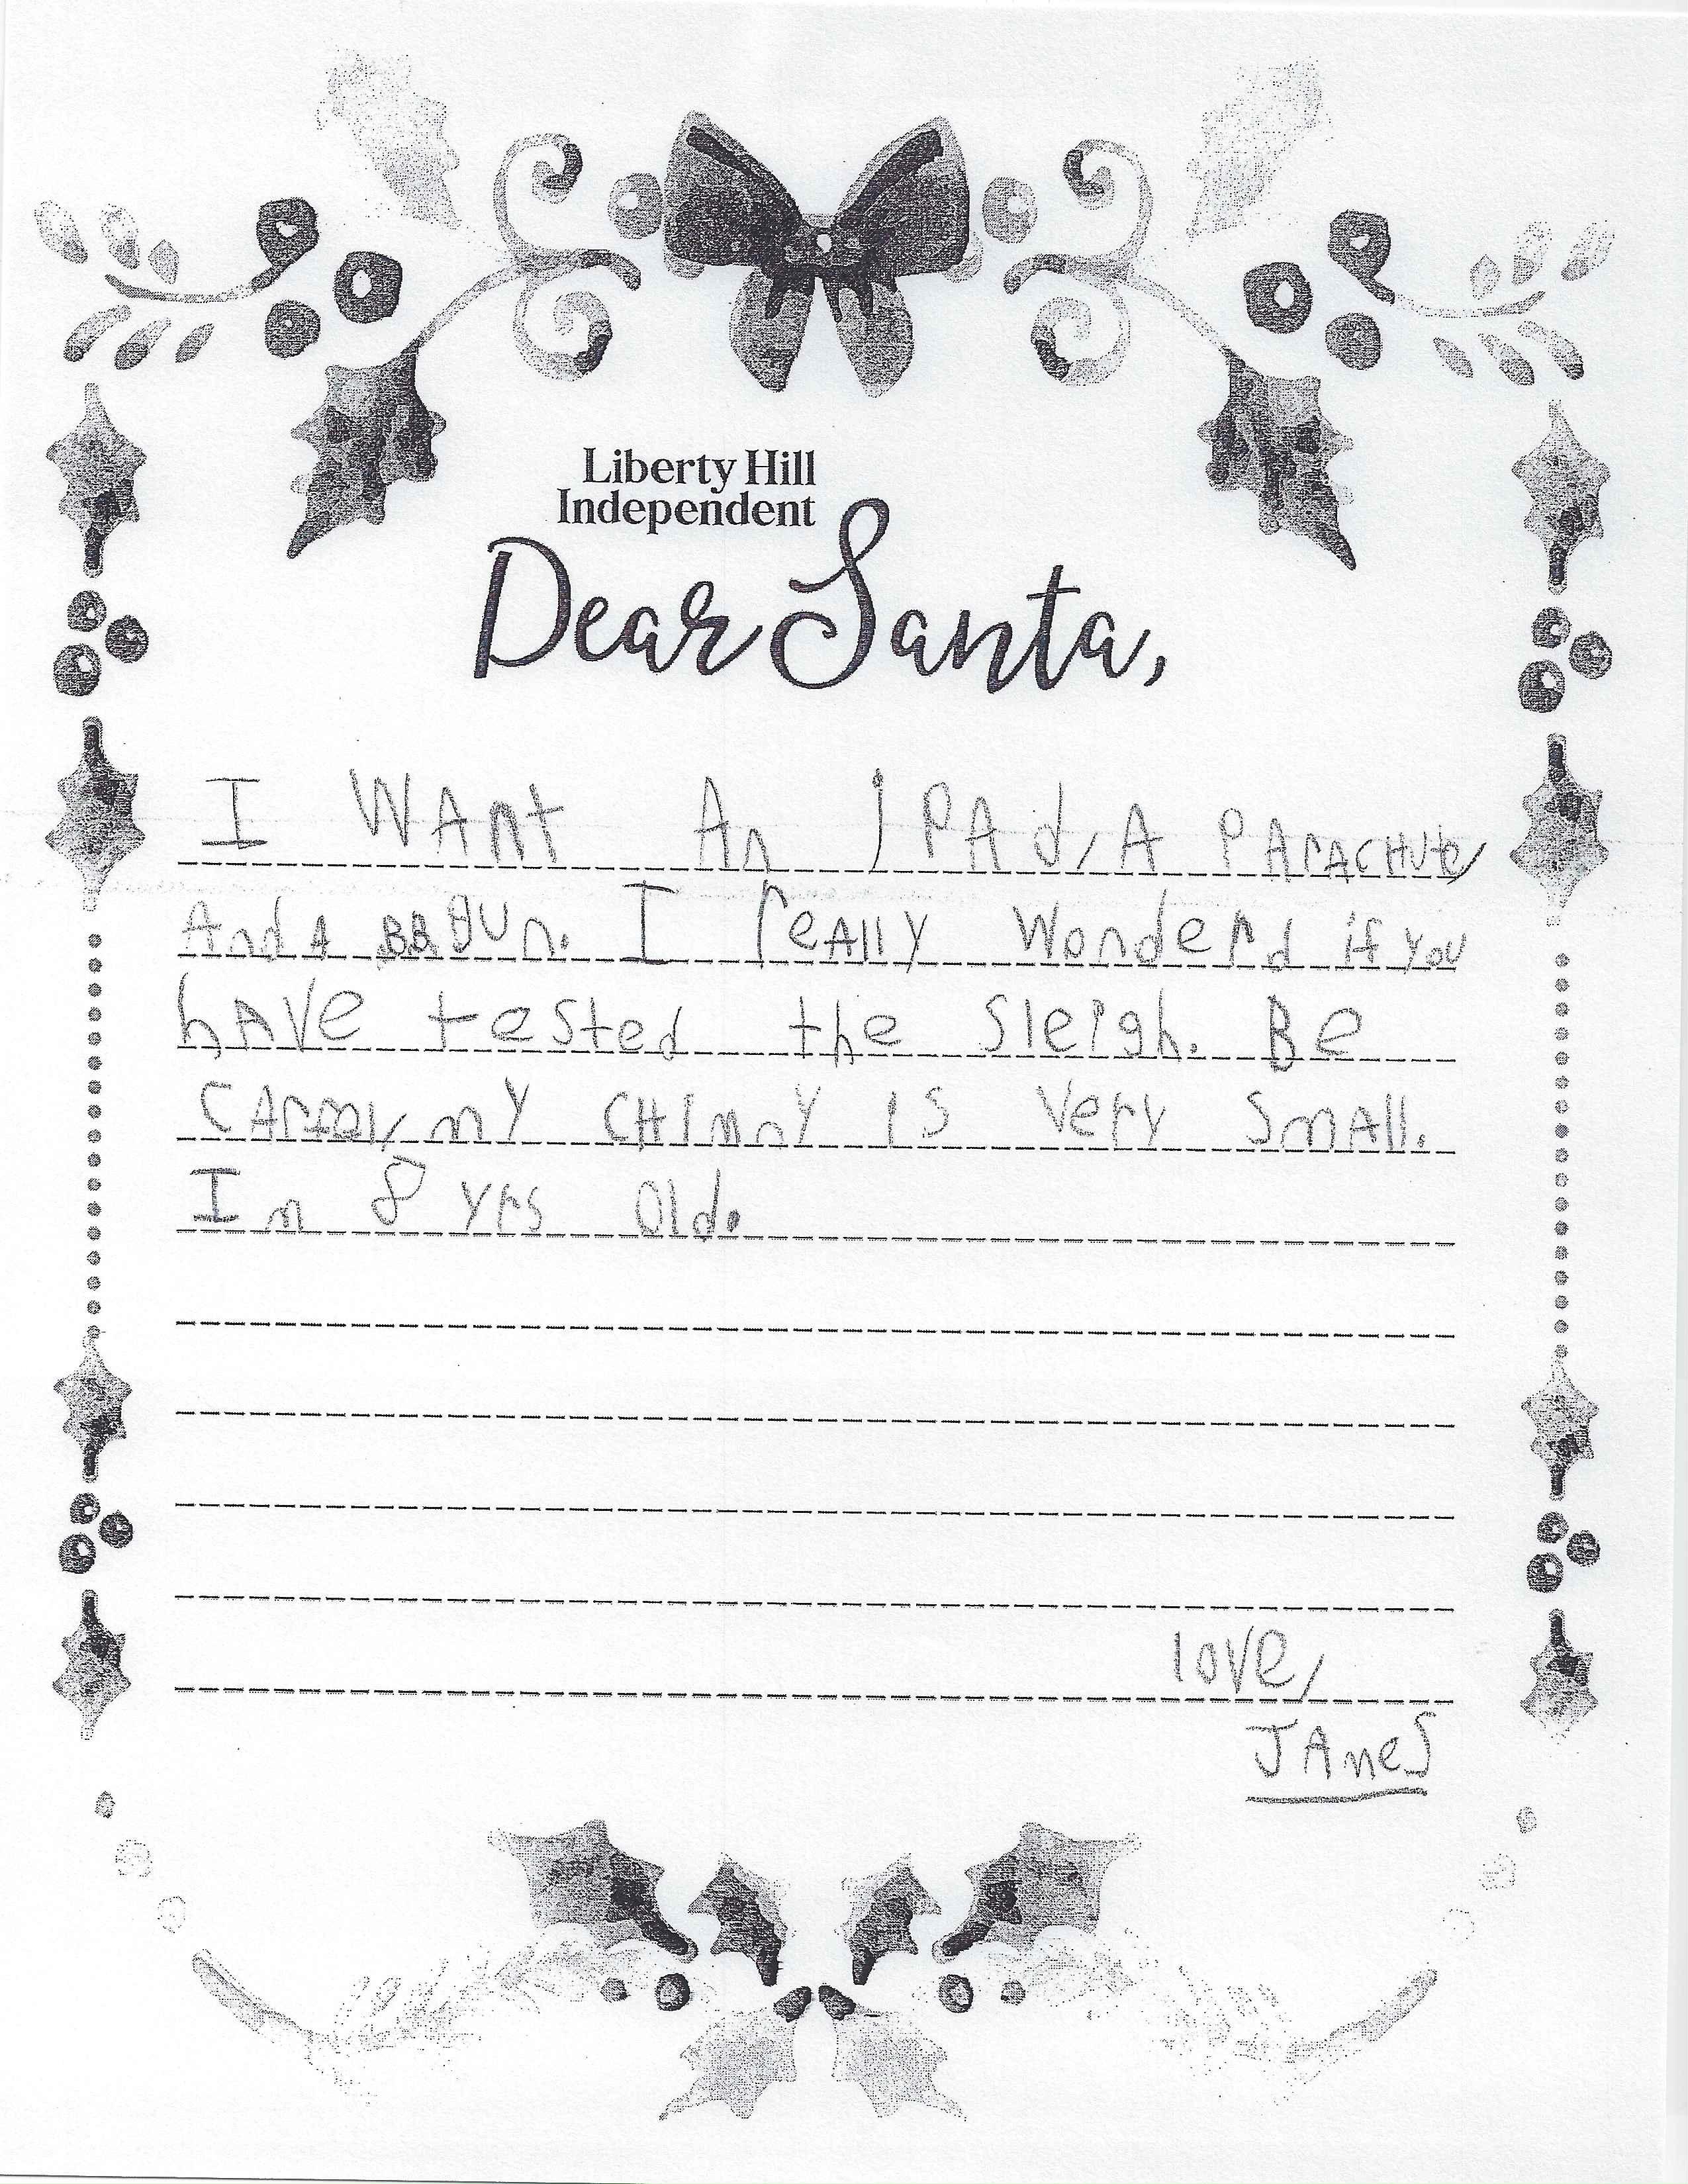 Liberty Hill
Independent
Dear Santa,
I WAnt An IPAd, A PArACHute,
And A BB gun. I reAlly Wonderd if you
hAve tested the Sleigh. Be
my CHImny is Very SmAll.
Im 8 yrs Old.
love,
JAmes